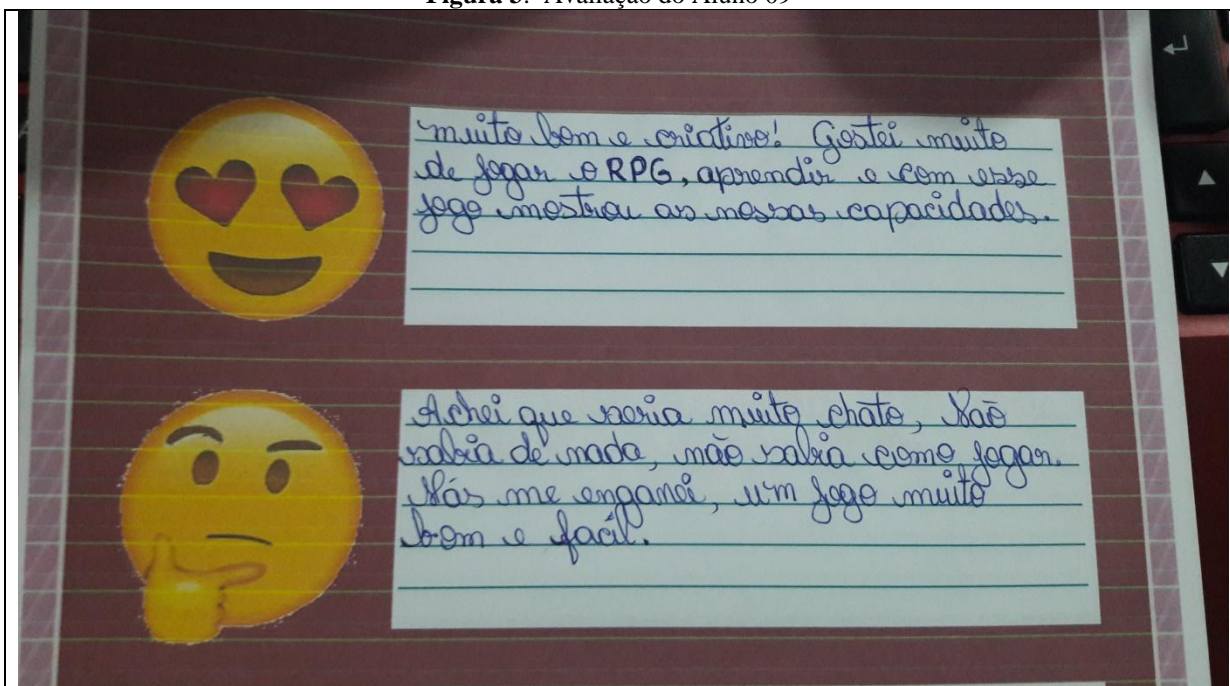 Figura 5: Avaliação do Aluno 09
muito bom e criativo! Gostei muito
de jogar o RPG, aprendir e com esse
jogo mostrou as nossas capacidades.
Achei que seria muito chato, Não
sabia de nada, não sabia como jogar.
Más me enganei, um jogo muito
bom e facil.